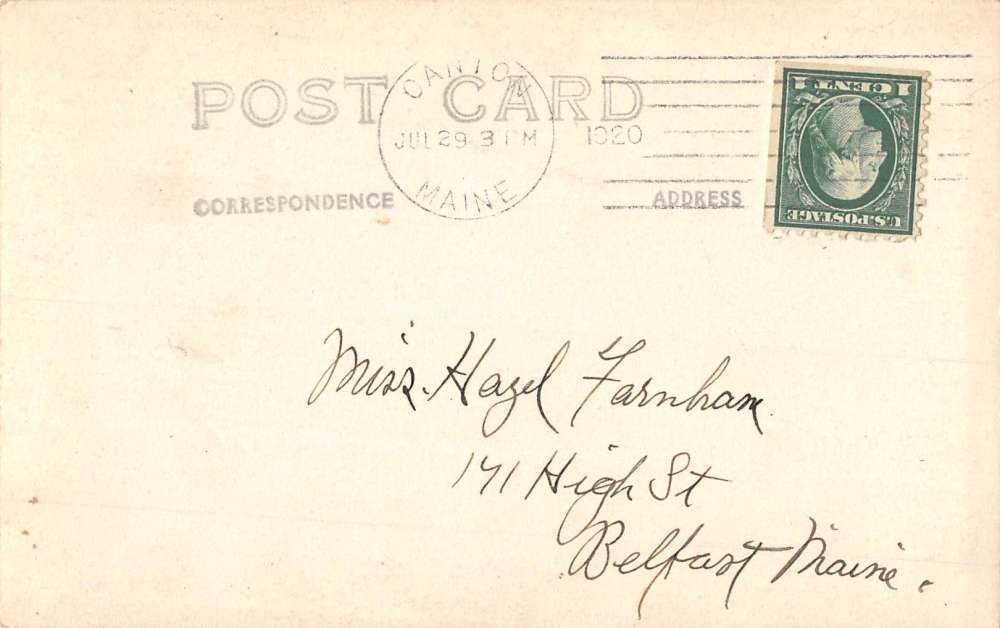 POST CARD
CANTON
JUL 29 3 PM 1920
MAINE
CORRESPONDENCE
ADDRESS
1 CENT 1
U.S. POSTAGE
Miss. Hazel Farnham
171 High St
Belfast Maine.